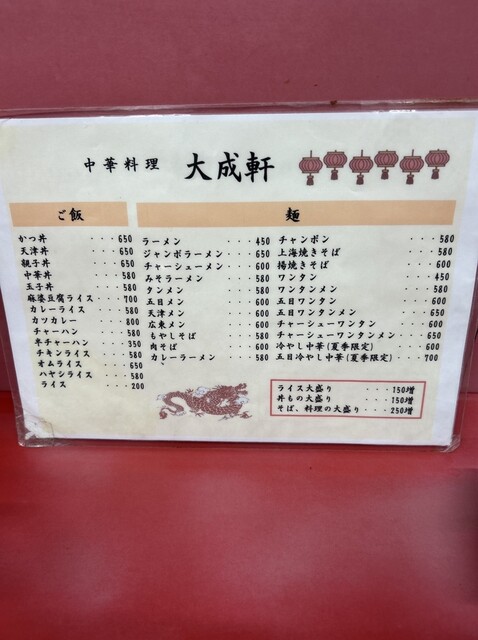 中華料理 大成軒
ご飯
かつ丼 ・・・650
天津丼 ・・・650
親子丼 ・・・650
中華丼 ・・・580
玉子丼 ・・・580
麻婆豆腐ライス・・・700
カレーライス ・・・580
カツカレー ・・・800
チャーハン ・・・580
半チャーハン ・・・350
チキンライス ・・・580
オムライス ・・・650
ハヤシライス ・・・580
ライス ・・・200
麺
ラーメン ・・・450
ジャンボラーメン ・・・650
チャーシューメン ・・・600
みそラーメン ・・・580
タンメン ・・・580
五目メン ・・・600
天津メン ・・・600
広東メン ・・・600
もやしそば ・・・580
肉そば ・・・600
カレーラーメン ・・・580
チャンポン ・・・580
上海焼きそば ・・・580
揚焼きそば ・・・600
ワンタン ・・・450
ワンタンメン ・・・580
五目ワンタン ・・・600
五目ワンタンメン ・・・650
チャーシューワンタン ・・・600
チャーシューワンタンメン ・・・650
冷やし中華(夏季限定) ・・・600
五目冷やし中華(夏季限定) ・・・700
ライス大盛り ・・・150増
丼もの大盛り ・・・150増
そば、料理の大盛り・・・250増